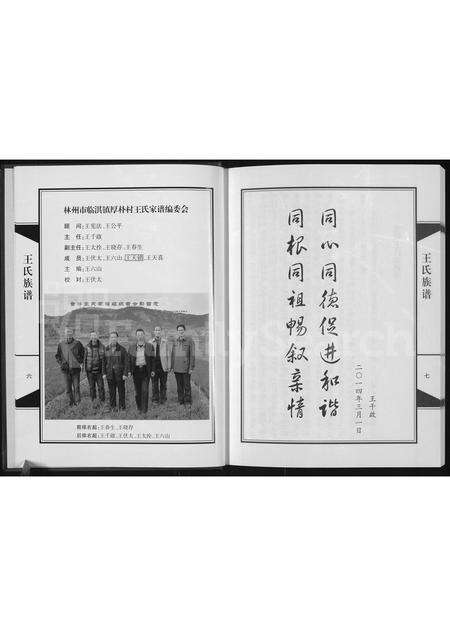 王氏族谱
六
林州市临淇镇厚朴村王氏家谱编委会
顾 问:王宪法、王公平
主 任:王千政
副主任:王大拴、王晓存、王春生
成 员:王伏太、王六山、王天锁、王天喜
主 编:王六山
校 对:王伏太
前排右起:王春生、王晓存
后排右起:王千政、王伏太、王大拴、王六山
同心同德促进和谐
同根同祖畅叙亲情
王千政
二〇一四年三月一日
王氏族谱
七